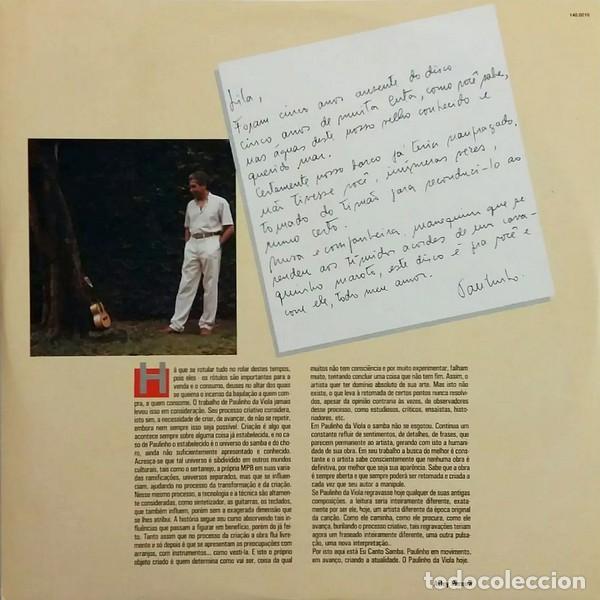 140.0016
Lila,
Foram cinco anos ausente do disco
cinco anos de muita luta, como você sabe,
nas águas deste nosso velho conhecido e
querido mar.
Certamente nosso barco já teria naufragado,
não tivesse você, inúmeras vezes,
tomado do timão para reconduzi-lo ao
rumo certo.
Musa e companheira, manequim que se
rendeu aos tímidos acordes de um cava-
quinho maroto, este disco é pra você e
com ele, todo meu amor.
Paulinho.
Há que se rotular tudo no rolar destes tempos,
pois eles - os rótulos são importantes para a
venda e o consumo, deuses no altar dos quais
se queima o incenso da bajulação a quem com-
pra, a quem consome. O trabalho de Paulinho da Viola jamais
levou isso em consideração. Seu processo criativo considera,
isto sim, a necessidade de criar, de avançar, de não se repetir,
embora nem sempre isso seja possível. Criação é algo que
acontece sempre sobre alguma coisa já estabelecida, e no ca-
so de Paulinho o estabelecido é o universo do samba e do cho-
ro, ainda não suficientemente apresentado e conhecido.
Acresça-se que tal universo é subdividido em outros mundos
culturais, tais como o sertanejo, a própria MPB em suas varia-
das ramificações, universos separados, mas que se influen-
ciam, ajudando no processo da transformação e da criação.
Nesse mesmo processo, a tecnologia e a técnica são altamen-
te consideradas, como sintetizador, as guitarras, os teclados,
que também influem, porém sem a exagerada dimensão que
se lhes atribui. A história segue seu curso absorvendo tais in-
fluências que passam a figurar em benefício, porém do já fei-
to. Tanto assim que no processo da criação a obra flui livre-
mente e só depois é que se apresentam as preocupações com
arranjos, com instrumentos... como vesti-la. E isto o próprio
objeto criado é quem determina como vai ser, coisa da qual
muitos não tem consciência e por muito experimentar, falham
muito, tentando concluir uma coisa que não tem fim. Assim, o
artista quer ter domínio absoluto de sua arte. Mas isto não
existe, o que leva à retomada de certos pontos nunca resolvi-
dos, apesar da opinião contrária às vezes, de observadores
desse processo, como estudiosos, críticos, ensaístas, histo-
riadores, etc.
Em Paulinho da Viola o samba não se esgotou. Continua um
constante refluir de sentimentos, de detalhes, de frases, que
parecem permanente ao artista, gerando com isto a humani-
dade de sua obra. Em seu trabalho a busca do melhor é cons-
tante e o artista sabe conscientemente que nenhuma obra é
definitiva, por melhor que seja sua aparência. Sabe que a obra
é sempre aberta e que sempre poderá ser retomada e criada a
cada vez que seu autor a manipule.
Se Paulinho da Viola regravasse hoje qualquer de suas antigas
composições, a leitura seria inteiramente diferente, exata-
mente por ser ele, hoje, um artista diferente da época original
da canção. Como ele caminha, como ele procura, como ele
avança, burilando o processo criativo, tais regravações teriam
agora um fraseado inteiramente diferente, uma outra pulsa-
ção, uma nova interpretação..
Por isto aqui está Eu Canto Samba. Paulinho em movimento,
em avanço, criando a atualidade. O Paulinho da Viola hoje.
todocoleccion
todocoleccion.net